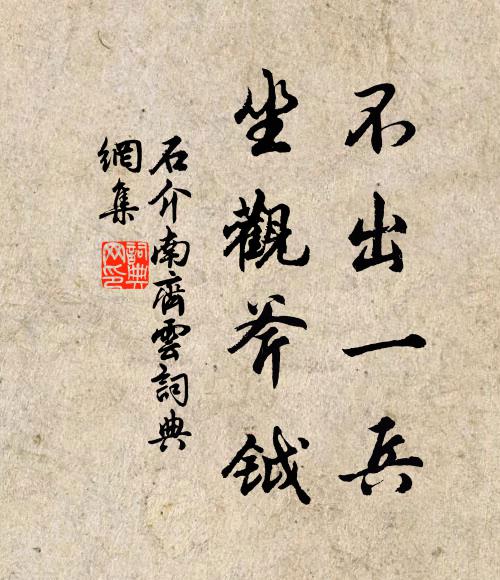 不出一兵
坐觀斧鉞
石介南齊雲詞典
網集
詞典網印